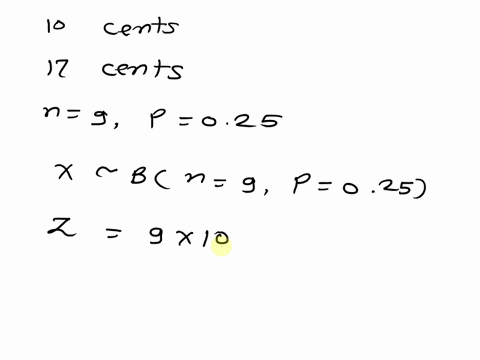 10 cents
17 cents
n = 9, P = 0.25
x ~ B( n = 9, P = 0.25)
Z = 9 x 10